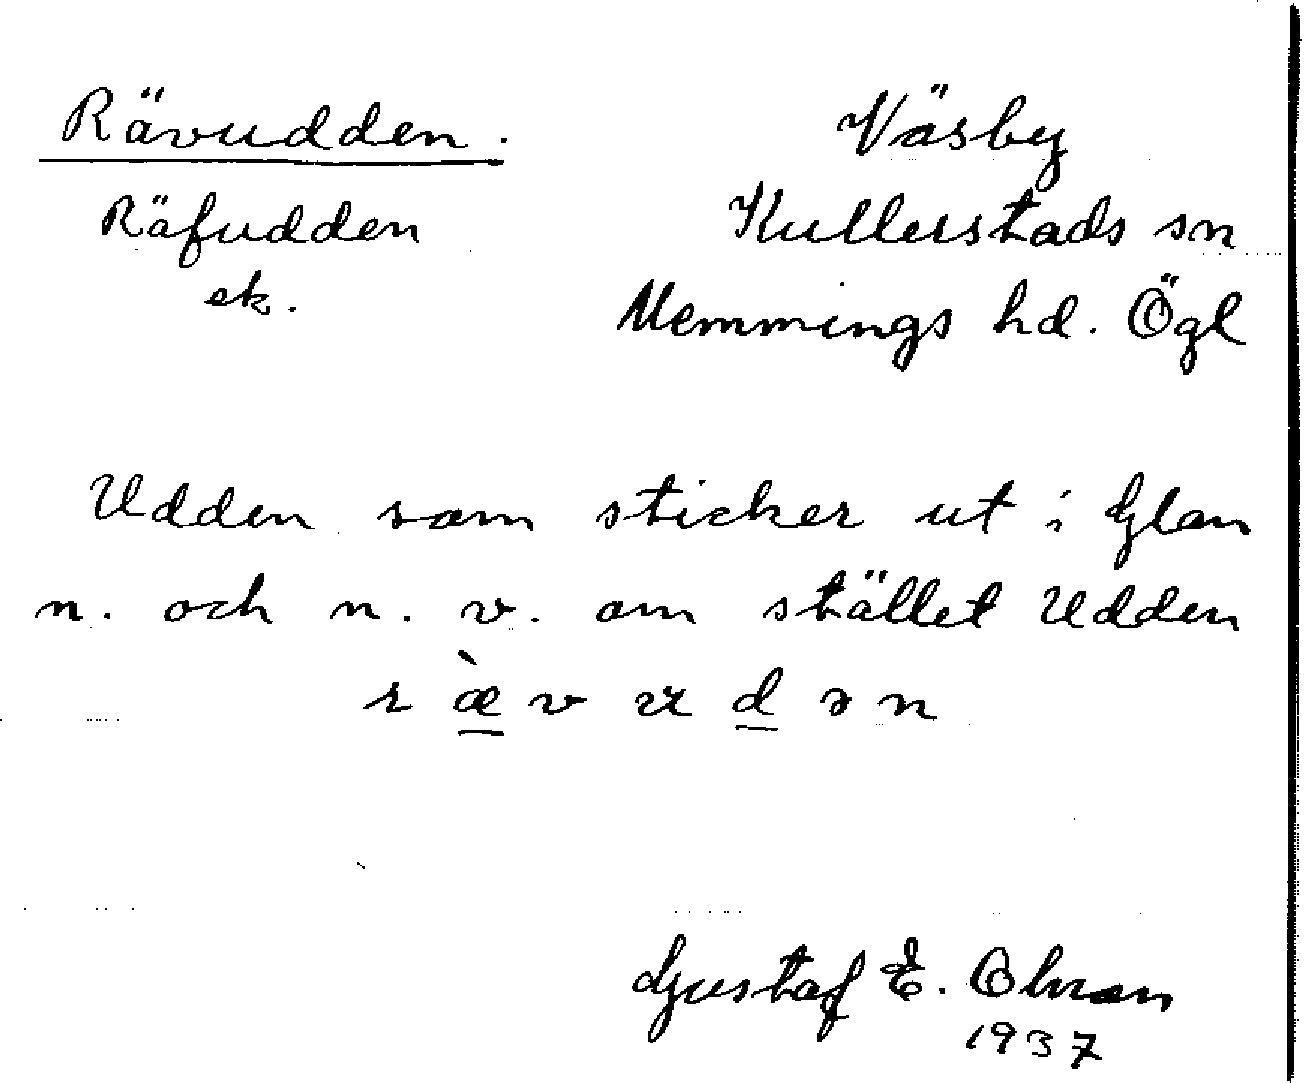 Rävudden.
Räfudden
ek.
Väsby
Kullerstads sn
Memmings hd. Ögl
Udden som sticker ut i Glan
n. och n. v. om stället Udden
r æ̀ v u d ə n
Gustaf E.
1937